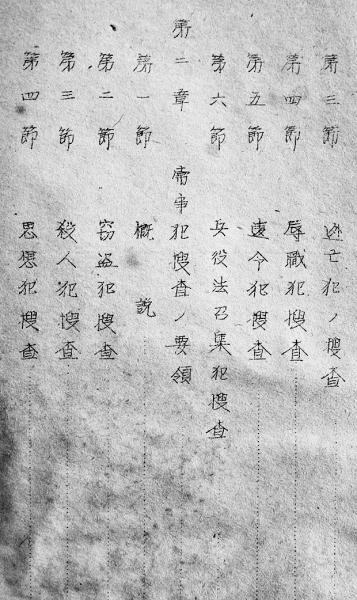 第三節 逃亡犯ノ捜査
第四節 辱職犯捜査
第五節 違令犯捜査
第六節 兵役法召集犯捜査
第二章 常事犯捜査ノ要領
第一節 概説
第二節 窃盗犯捜査
第三節 殺人犯捜査
第四節 思想犯捜査